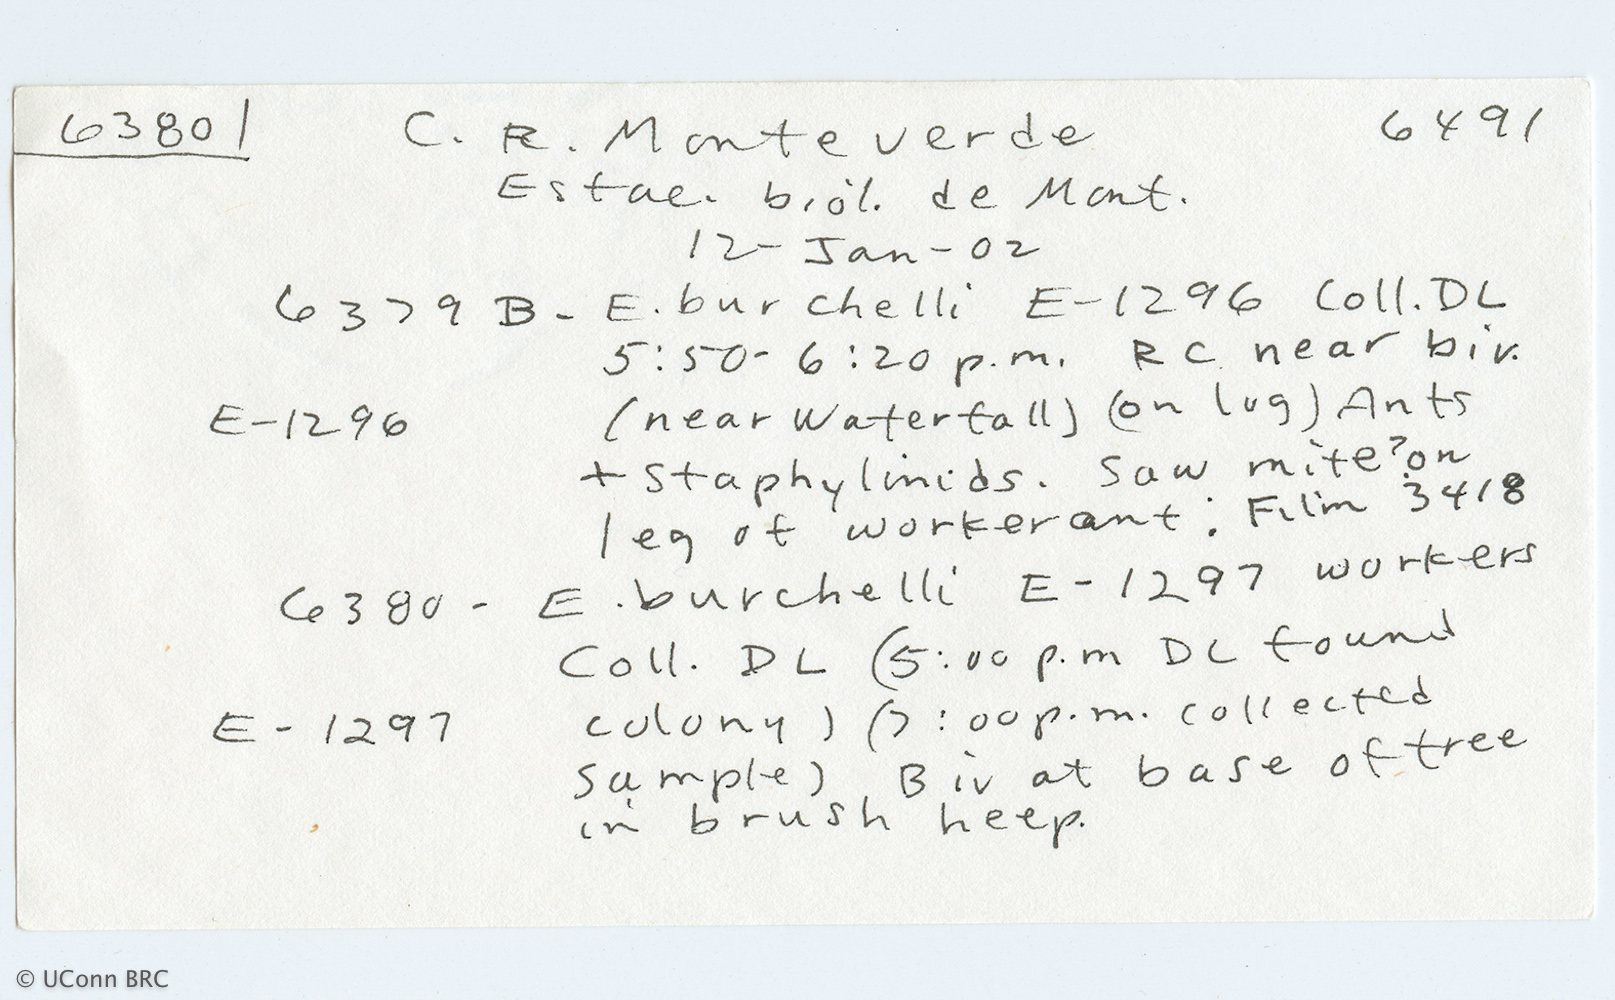 6380 C. R. Monteverde 6491
Estac. biol. de Mont.
12-Jan-02
6379 B - E. burchelli E-1296 Coll. DL
5:50 - 6:20 p.m. RC near biv.
E-1296 (near Waterfall) (on log) Ants
+ Staphylinids. Saw mite? on
leg of worker ant. Film 3418
6380 - E. burchelli E-1297 workers
Coll. DL (5:00 p.m DL found
E-1297 colony) (7:00 p.m. collected
sample) Biv at base of tree
in brush heep.
© UConn BRC